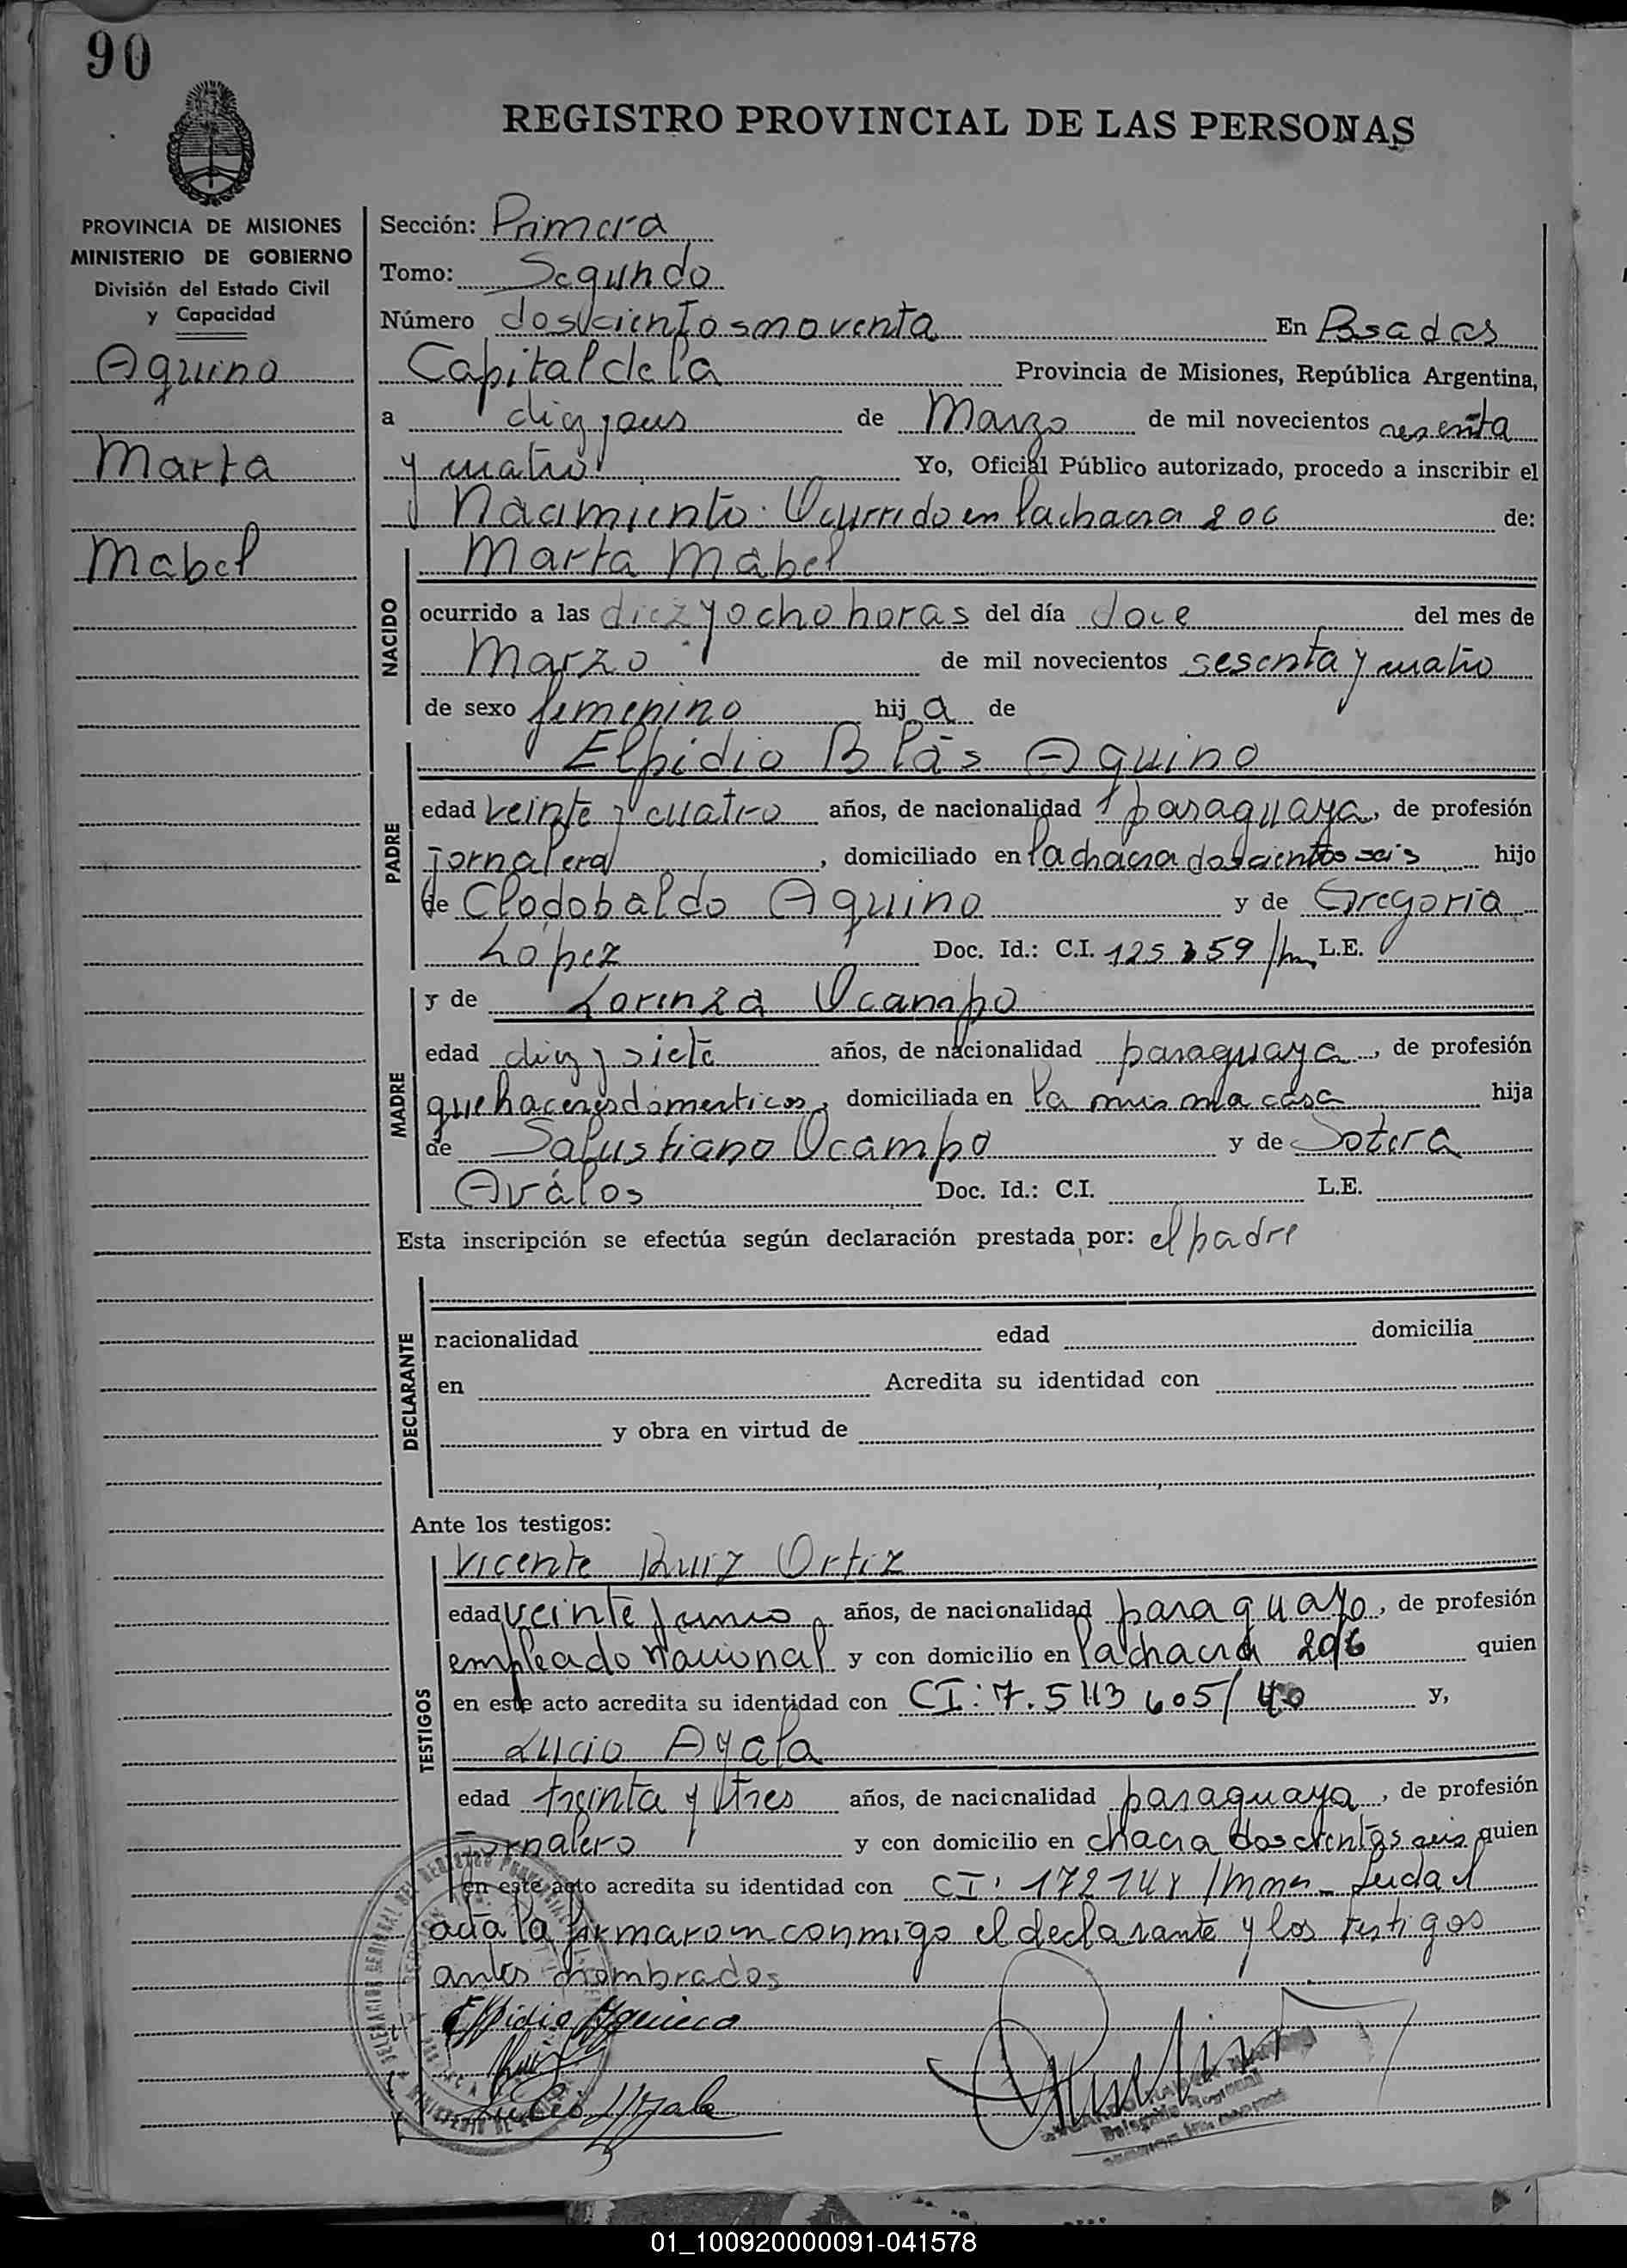 90
REGISTRO PROVINCIAL DE LAS PERSONAS
PROVINCIA DE MISIONES
MINISTERIO DE GOBIERNO
División del Estado Civil
y Capacidad
Aquino
Marta
Mabel
Sección: Primera
Tomo: Segundo
Número doscientos noventa En Posadas
Capital de la Provincia de Misiones, República Argentina,
a diez y seis de Marzo de mil novecientos sesenta
y cuatro Yo, Oficial Público autorizado, procedo a inscribir el
Nacimiento. Ocurrido en la chacra 206 de:
NACIDO
Marta Mabel
ocurrido a las diez y ocho horas del día doce del mes de
Marzo de mil novecientos sesenta y cuatro
de sexo femenino hija de
PADRE
Elpidio Blás Aquino
edad veinte y cuatro años, de nacionalidad paraguaya, de profesión
jornalera, domiciliado en la chacra doscientos seis hijo
de Clodobaldo Aquino y de Gregoria
López Doc. Id.: C.I. L.E.
MADRE
y de Lorenza Ocampo
edad diez y siete años, de nacionalidad paraguaya, de profesión
quehaceres domesticos, domiciliada en la misma casa hija
de Salustiano Ocampo y de Sotera
Aválos Doc. Id.: C.I. L.E.
Esta inscripción se efectúa según declaración prestada por: el padre
DECLARANTE
nacionalidad edad domicilia
en Acredita su identidad con
y obra en virtud de
Ante los testigos:
TESTIGOS
Vicente Ruiz Ortiz
edad veinte y cinco, años, de nacionalidad paraguayo, de profesión
empleado nacional y con domicilio en la chacra 206 quien
en este acto acredita su identidad con CI: 7.543 605/40 y,
Lucio Ayala
edad treinta y tres años, de nacionalidad paraguaya, de profesión
Jornalero y con domicilio en chacra doscientos seis quien
en este acto acredita su identidad con CI: Leida el
acta la firmaron conmigo el declarante y los testigos
antes nombrados
Elpidio Aquino
Ruiz
Lucio Ayala
Delegado Regional
01_100920000091-041578